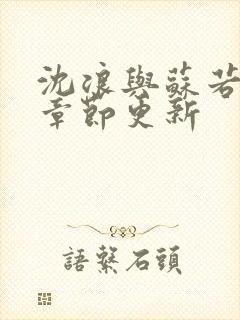 沈浪與蘇若
章節更新
語聲石頭